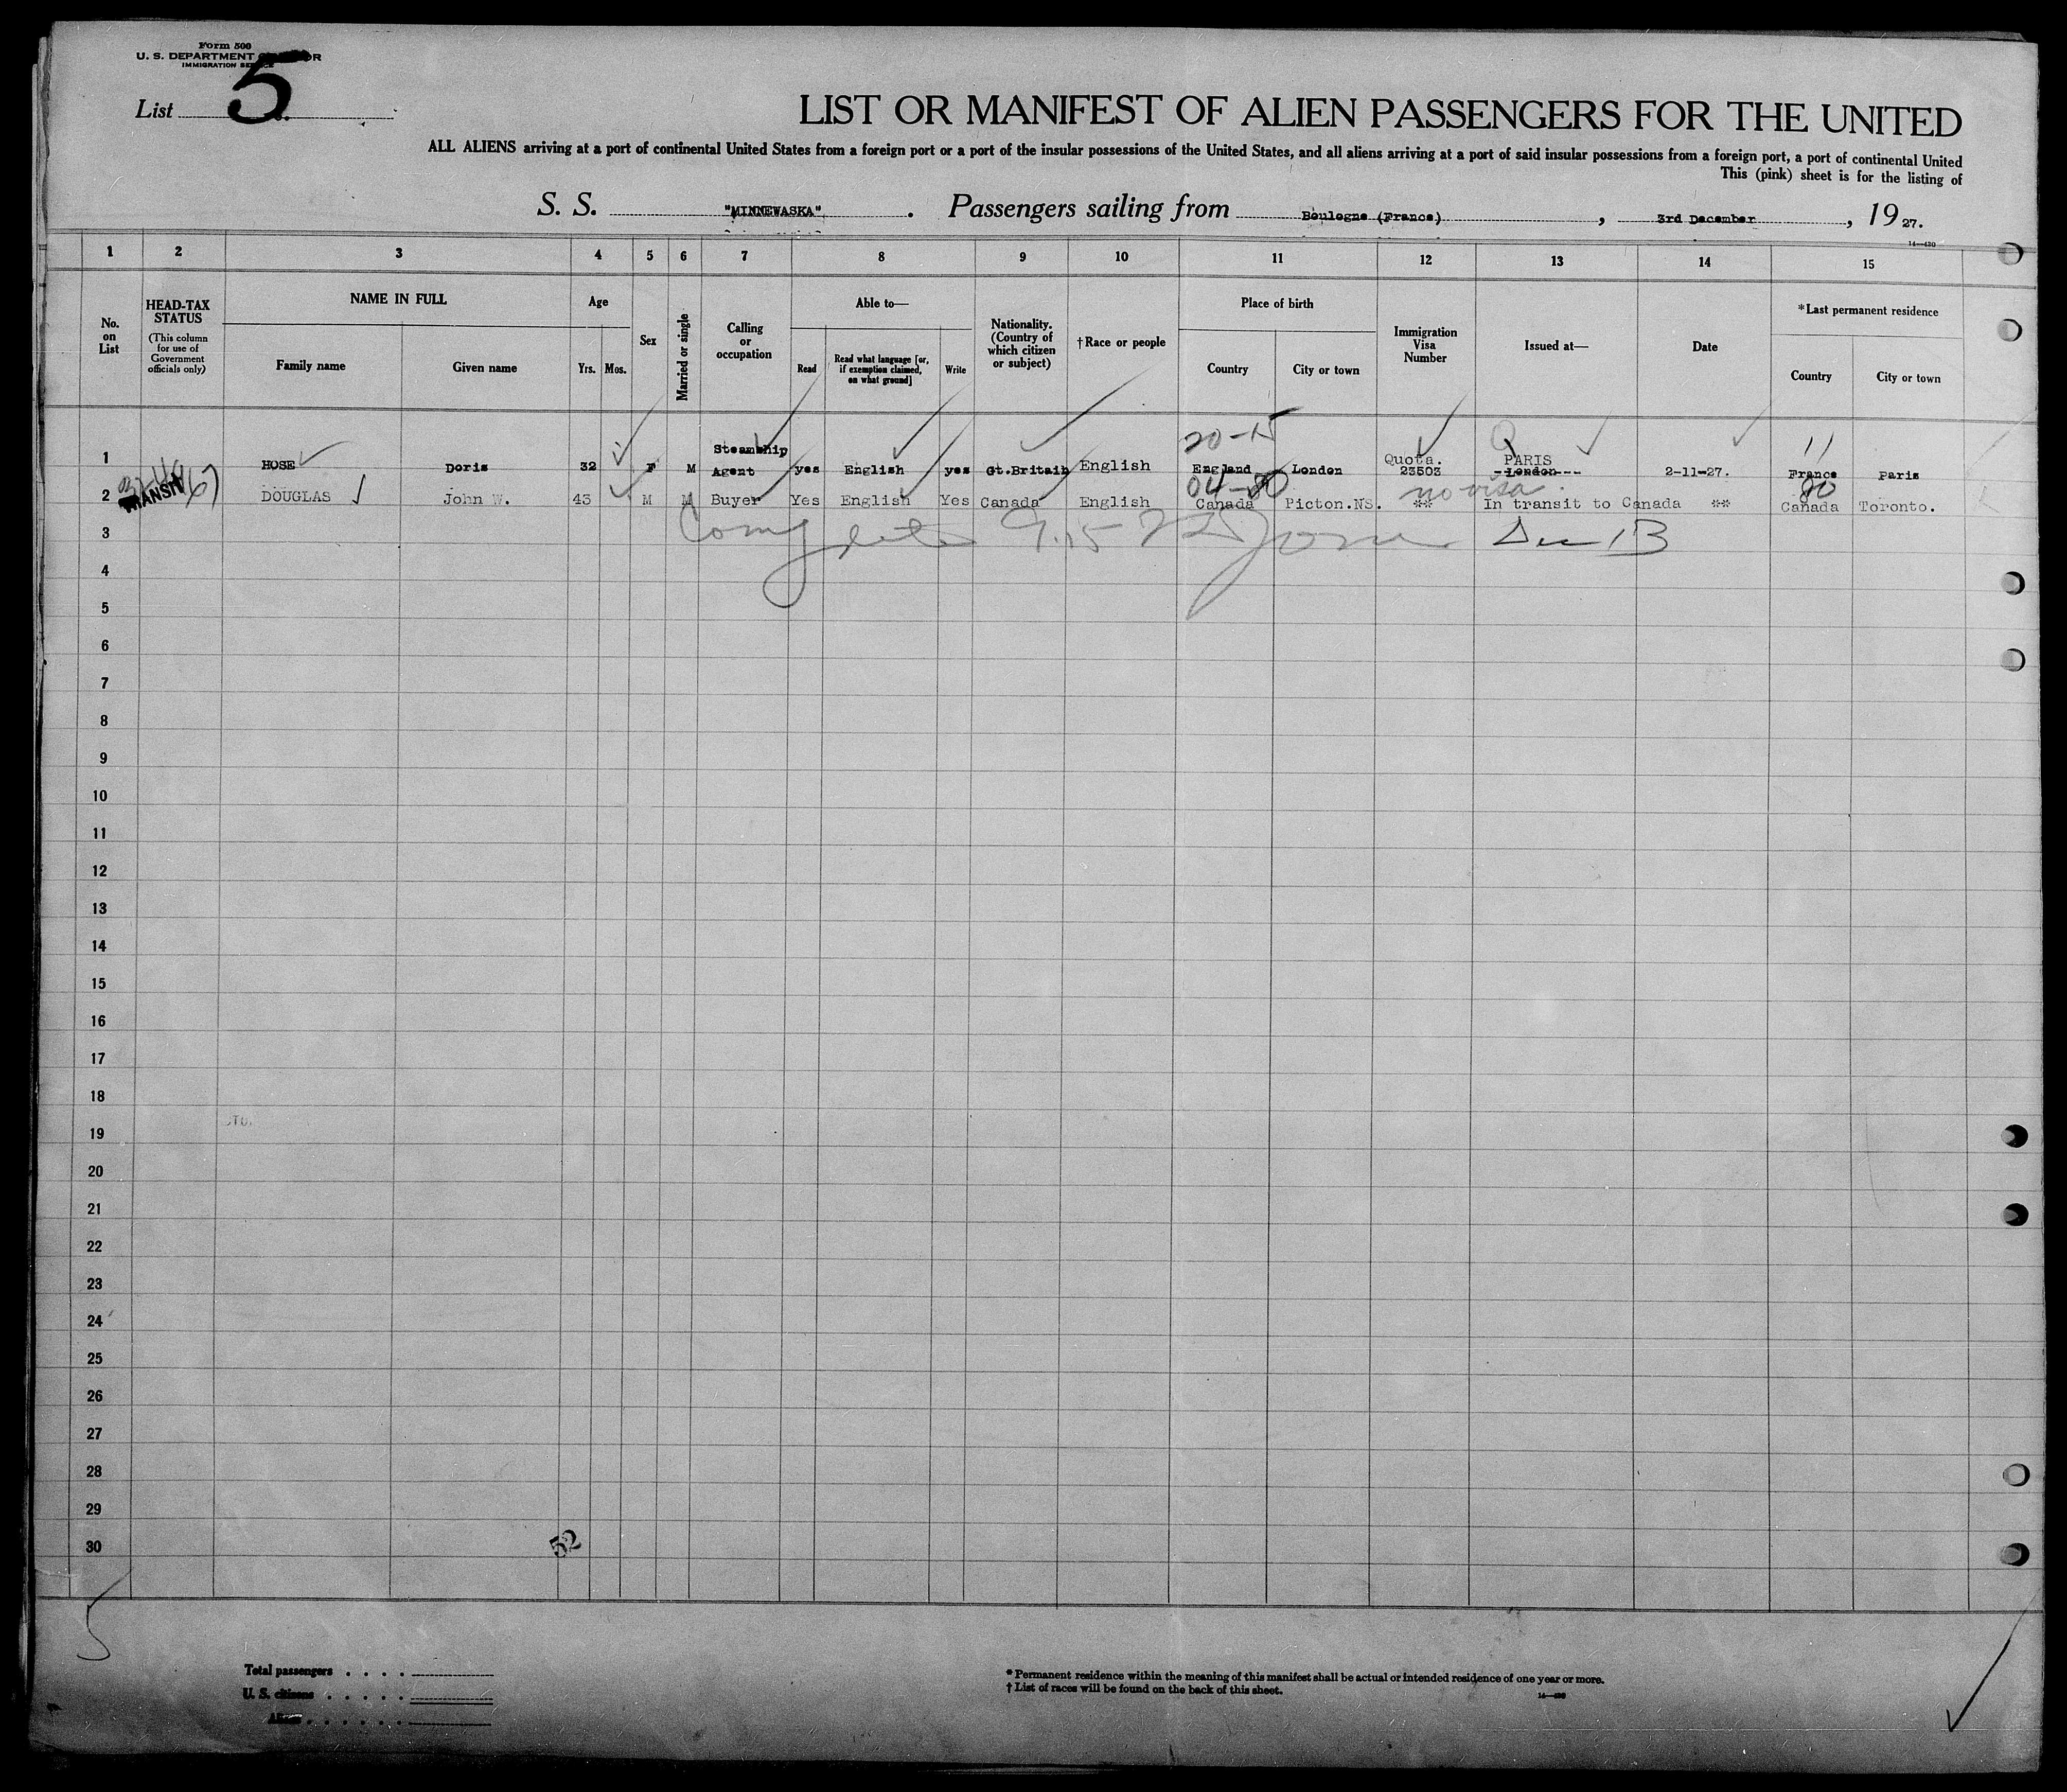 Form 500
U. S. DEPARTMENT OF LABOR
IMMIGRATION SERVICE
List 5
LIST OR MANIFEST OF ALIEN PASSENGERS FOR THE UNITED
ALL ALIENS arriving at a port of continental United States from a foreign port or a port of the insular possessions of the United States, and all aliens arriving at a port of said insular possessions from a foreign port, a port of continental United
This (pink) sheet is for the listing of
S. S. "MINNEWASKA". Passengers sailing from Boulogne (France), 3rd December, 1927.
14—430
1 2 3 4 5 6 7 8 9 10 11 12 13 14 15
No. on List
HEAD-TAX STATUS
(This column for use of Government officials only)
NAME IN FULL
Family name
Given name
Age
Yrs. Mos.
Sex
Married or single
Calling or occupation
Able to—
Read
Read what language [or, if exemption claimed, on what ground]
Write
Nationality. (Country of which citizen or subject)
†Race or people
Place of birth
Country
City or town
Immigration Visa Number
Issued at—
Date
*Last permanent residence
Country
City or town
20-15 Q 11
1 HOSE Doris 32 F M Steamship Agent yes English yes Gt.Britain English England London Quota. 23503 PARIS London 2-11-27. France Paris
TRANSIT
04-80 no visa 80
2 DOUGLAS John W. 43 M M Buyer Yes English Yes Canada English Canada Picton.NS. ** In transit to Canada ** Canada Toronto.
3 Dec 13
4
5
6
7
8
9
10
11
12
13
14
15
16
17
18
19
20
21
22
23
24
25
26
27
28
29
30
52
5
Total passengers
U. S. citizens
Aliens
* Permanent residence within the meaning of this manifest shall be actual or intended residence of one year or more.
† List of races will be found on the back of this sheet.
14—430